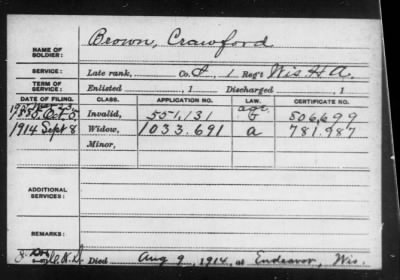 Brown, Crawford
NAME OF
SOLDIER:
SERVICE: Late rank, Co. I, 1 Reg't Wis. H A.
TERM OF
SERVICE: Enlisted , 1 Discharged , 1
DATE OF FILING. CLASS. APPLICATION NO. LAW. CERTIFICATE NO.
Oct 5 Invalid, 551,131 506,699
1914 Sept 8 Widow, 1033.691 a 781.987
Minor,
ADDITIONAL
SERVICES:
REMARKS:
Died Aug 9, 1914, at Endeavor, Wis.